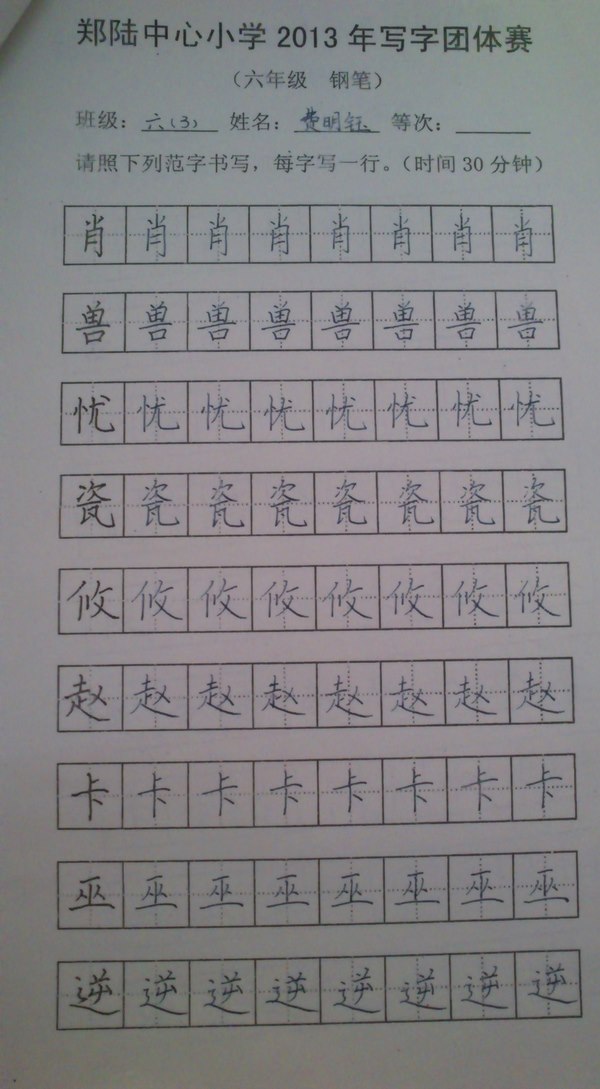 郑陆中心小学 2013 年写字团体赛
（六年级 钢笔）
班级：六(3) 姓名：费明钰 等次：
请照下列范字书写，每字写一行。（时间 30 分钟）
肖肖肖肖肖肖肖肖
兽兽兽兽兽兽兽兽
忧忧忧忧忧忧忧忧
瓷瓷瓷瓷瓷瓷瓷瓷
攸攸攸攸攸攸攸攸
赵赵赵赵赵赵赵赵
卡卡卡卡卡卡卡卡
巫巫巫巫巫巫巫巫
逆逆逆逆逆逆逆逆